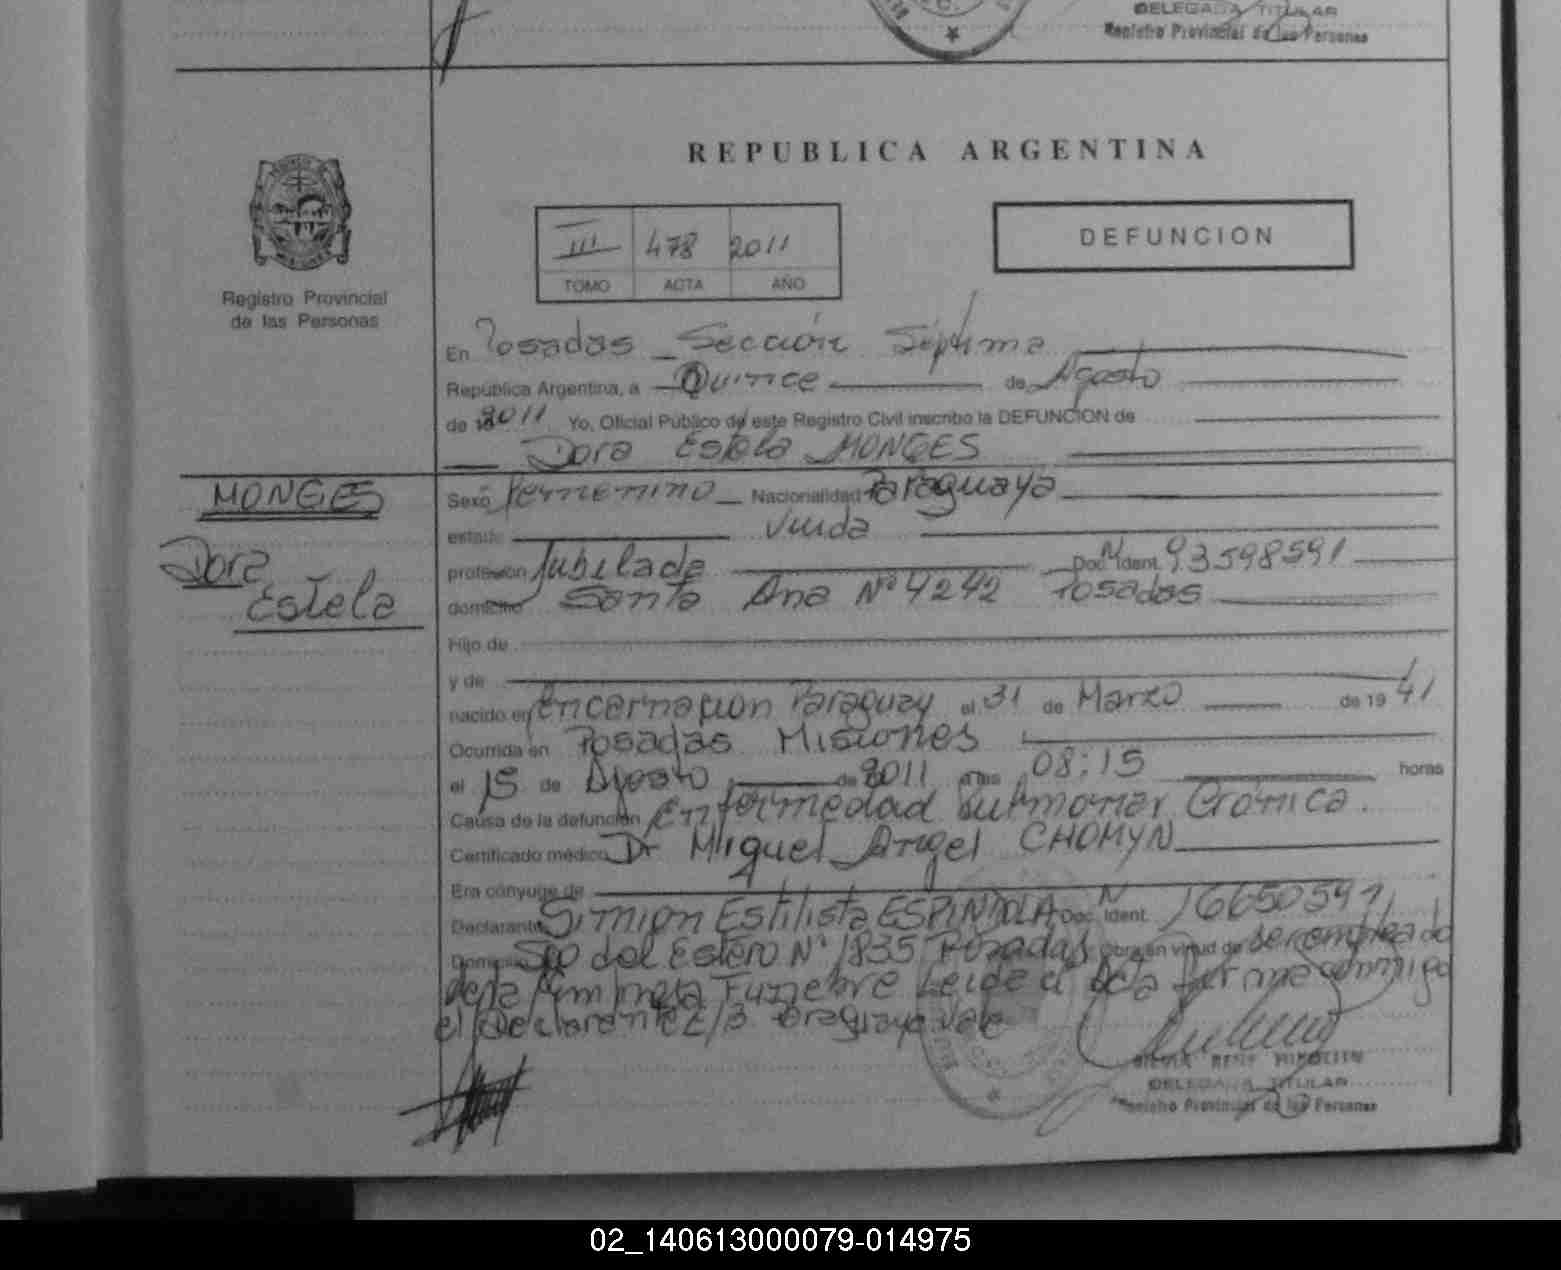 DELEGADA TITULAR
Registro Provincial de las Personas
REPUBLICA ARGENTINA
III 478 2011
TOMO ACTA AÑO
DEFUNCION
Registro Provincial
de las Personas
En Posadas Sección Séptima
República Argentina, a Quince de Agosto
de 2011 Yo, Oficial Público de este Registro Civil inscribo la DEFUNCION de
Dora Estela MONGES
MONGES
Dora
Estela
Sexo Femenino Nacionalidad Paraguaya
estado Viuda
profesión Jubilada Doc. Ident. N 93598591
domicilio Santa Ana Nº 4242 Posadas
Hijo de
y de
nacido en Encarnacion Paraguay el 31 de Marzo de 1941
Ocurrida en Posadas Misiones
el 15 de Agosto de 2011 a las 08:15 horas
Causa de la defunción Enfermedad Pulmonar Crónica.
Certificado médico Dr Miguel Angel CHOMYN
Era cónyuge de
Declarante Simion Estilista ESPINDOLA Doc. Ident. N 16650591
Domicilio Sgo del Estero Nº 1835 Posadas obra en virud de ser empleado
de la Empresa Funebre Leida el Acta firma conmigo
el Declarante E/3 Paraguaya vale
DELEGADA TITULAR
Registro Provincial de las Personas
02_140613000079-014975